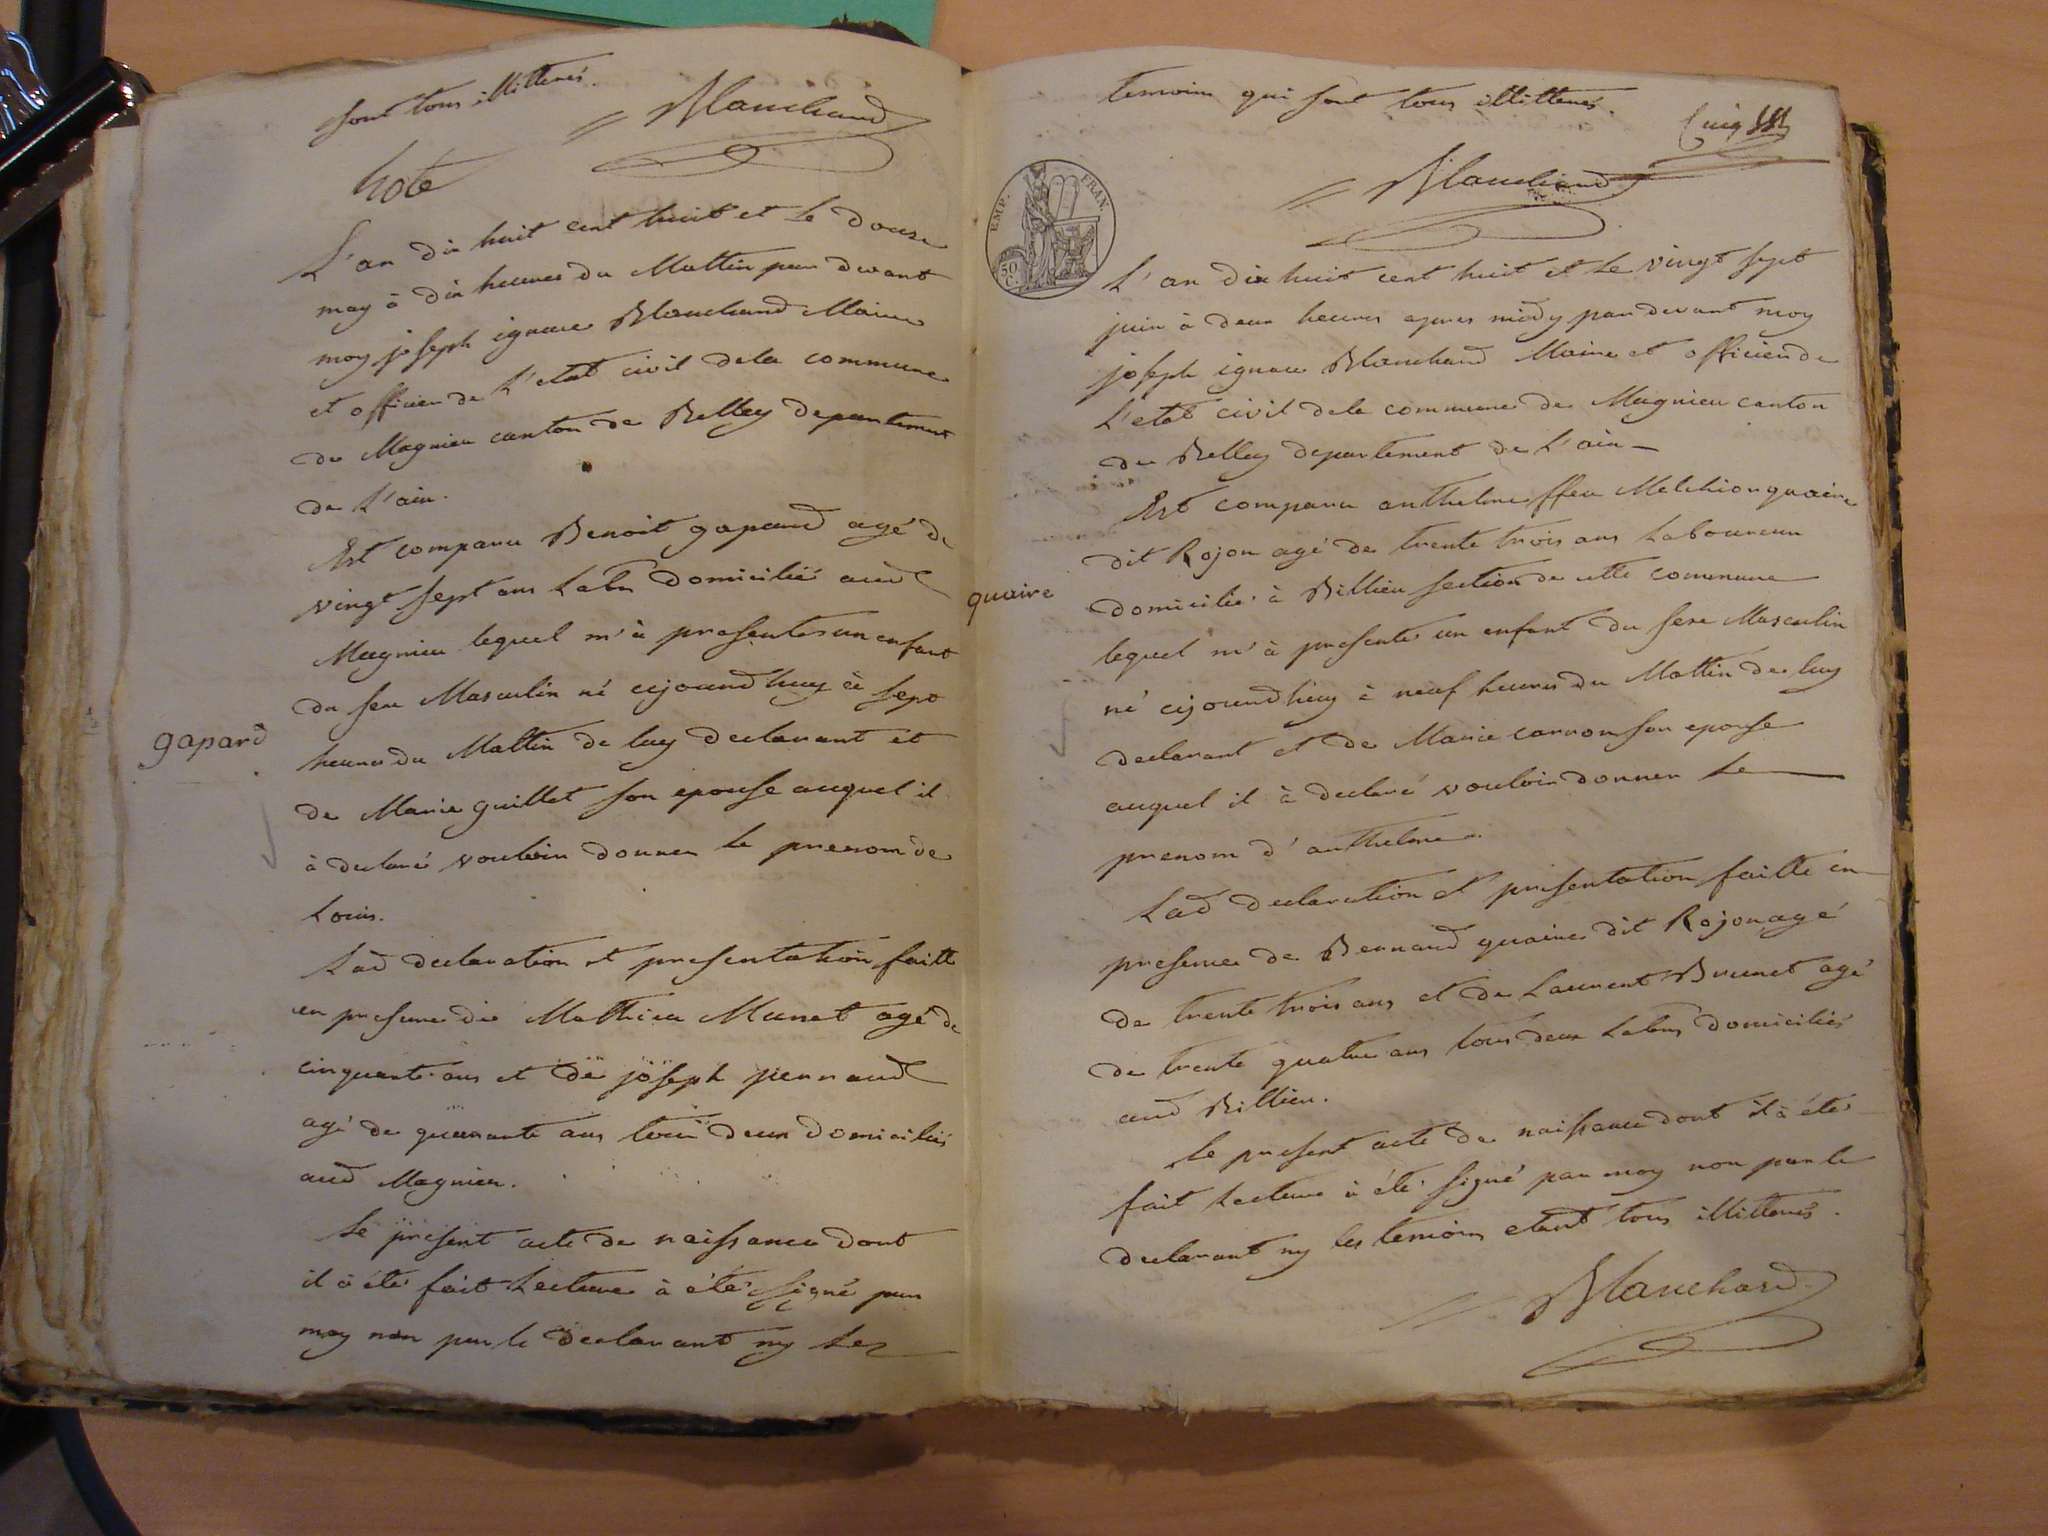 sont tous illitterés.
Blanchard
L'an dix huit cent huit et le douze
may à dix heures du Mattin par devant
moy joseph ignace Blanchard Maire
et officier de L'etat civil dela commune
de Magnieu canton de Belley departement
de L'ain.
Est comparu Benoit gapard agé de
vingt sept ans Labr domicilié aud
Magnieu lequel m'à presenté un enfant
du sexe Masculin né cejourdhuy à sept
heures du Mattin de luy declarant et
gapard
de Marie guillet son epouse auquel il
à declaré vouloir donner le prenom de
Louis.
Lad declaration et presentation faitte
en presence de Mathieu Munet agé de
cinquante ans et de joseph pernaud
agé de quarante ans tous deux domiciliés
aud Magnieu.
Le present acte de naissance dont
il à été fait Lecture à été signé par
moy non par le declarant ny les
temoins qui sont tous illitterés.
Blanchard
EMP. FRAN.
50 C.
L'an dix huit cent huit et le vingt sept
juin à deux heures apres midy par devant moy
joseph ignace Blanchard Maire et officier de
L'etat civil dela commune de Magnieu canton
de Belley departement de L'ain
Est comparu anthelme ffeu Melchior quaire
dit Rojon agé de trente trois ans Laboureur
quaire
domicilié à Billieu section de cette commune
lequel m'à presenté un enfant du sexe Masculin
né cejourdhuy à neuf heures du Mattin de luy
declarant et de Marie carron son epouse
auquel il à declaré vouloir donner le
prenom d'anthelme.
Lad declaration et presentation faitte en
presence de Bernard quaire dit Rojon agé
de trente trois ans et de Laurent Brunet agé
de trente quatre ans tous deux Labrs domiciliés
aud Billieu.
Le present acte de naissance dont il à été
fait Lecture à été signé par moy non par le
declarant ny les temoins etant tous illitterés.
Blanchard